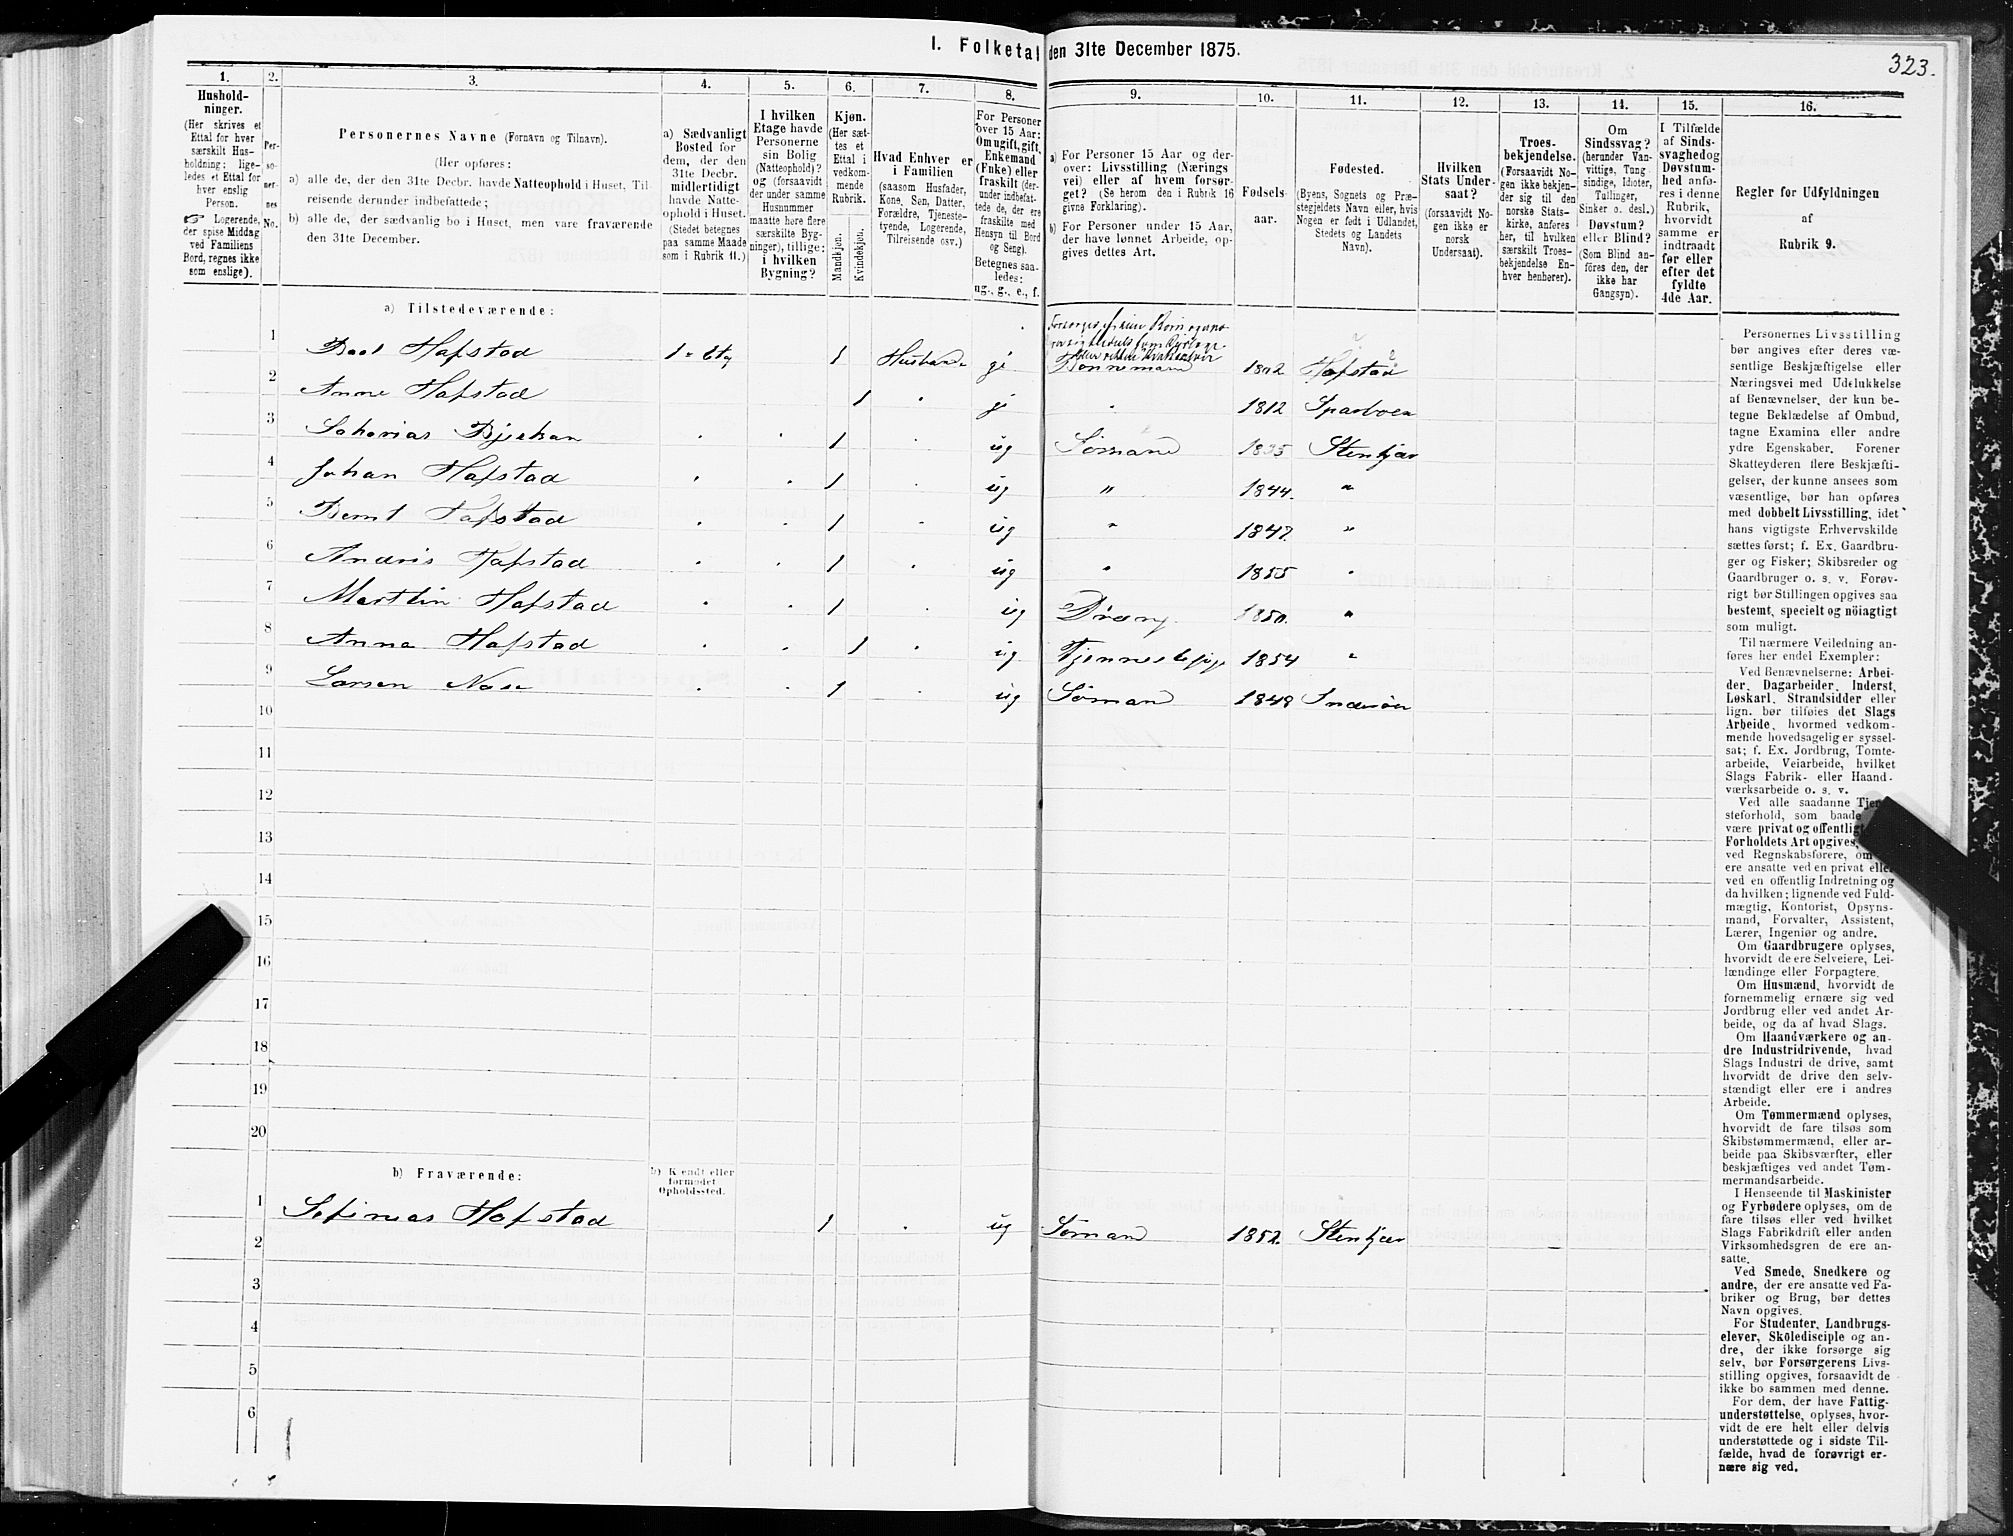 323.
I. Folketal den 31te December 1875.
1. 2. 3. 4. 5. 6. 7. 8. 9. 10. 11. 12. 13. 14. 15. 16.
Hushold-
ninger.
(Her skrives et
Ettal for hver
særskilt Hus-
holdning; lige-
ledes et Ettal for
hver enslig
Person.
☞ Logerende,
der spise Middag
ved Familiens
Bord, regnes ikke
som enslige).
Per-
so-
ner-
nes
No.
Personernes Navne (Fornavn og Tilnavn).
(Her opføres:
a) alle de, der den 31te Decbr. havde Natteophold i Huset, Til-
reisende derunder indbefattede;
b) alle de, der sædvanlig bo i Huset, men vare fraværende
den 31te December.
a) Sædvanligt
Bosted for
dem, der den
31te Decbr.
midlertidigt
havde Natte-
ophold i Huset.
(Stedet betegnes
paa samme Maade
som i Rubrik 11.)
I hvilken
Etage havde
Personerne
sin Bolig
(Natteophold)?
og (forsaavidt
der under samme
Husnummer
maatte høre flere
særskilte Byg-
ninger), tillige:
i hvilken
Bygning?
Kjøn.
(Her sæt-
tes et
Ettal i
vedkom-
mende
Rubrik.
Mandkjøn.
Kvindekjøn.
Hvad Enhver er
i Familien
(saasom Husfader,
Kone, Søn, Datter,
Forældre, Tjeneste-
tyende, Logerende,
Tilreisende osv.)
For Personer
over 15 Aar:
Om ugift, gift,
Enkemand
(Enke) eller
fraskilt (der-
under indbefat-
tede de, der ere
fraskilte med
Hensyn til Bord
og Seng).
Betegnes saa-
ledes:
ug., g., e., f.
a) For Personer 15 Aar og der-
over: Livsstilling (Nærings
vei) eller af hvem forsør-
get? (Se herom den i Rubrik 16
givne Forklaring).
b) For Personer under 15 Aar,
der have lønnet Arbeide, op-
gives dettes Art.
Fødsels-
aar.
Fødested.
(Byens, Sognets og Præ-
stegjeldets Navn eller, hvis
Nogen er født i Udlandet,
Stedets og Landets
Navn).
Hvilken
Stats Under-
saat?
(forsaavidt No-
gen ikke er
norsk
Undersaat).
Troes-
bekjendelse.
(Forsaavidt No-
gen ikke bekjen-
der sig til den
norske Stats-
kirke, anføres
her, til hvilken
særskilt Troes-
bekjendelse En-
hver henhører).
Om
Sindssvag?
(herunder Van-
vittige, Tung
sindige, Idioter,
Tullinger,
Sinker o. desl.)
Døvstum?
eller Blind?
(Som Blind an-
føres den, der
ikke har
Gangsyn).
I Tilfælde
af Sinds-
svaghed og
Døvstum-
hed anfø-
res i denne
Rubrik,
hvorvidt
samme er
indtraadt
før eller
efter det
fyldte
4de Aar.
Regler for Udfyldningen
af
Rubrik 9.
a) Tilstedeværende:
1 Hafstad 1 1802 Hafstad
2 Anne Hafstad 1 1812
3 1 ug Sømand 1835 Stenkjær
4 Johan Hafstad 1 ug " 1844. "
5 Bernt Hafstad 1 ug " 1847. "
6 Andris Hafstad 1 ug " 1855 "
7 Marttin Hafstad 1 ug Dræng 1850. "
8 Anna Hafstad 1 ug 1854 "
9 Larsen 1 ug Sømand 1848
10
11
12
13
14
15
16
17
18
19
20
b) Fraværende:
b) Kjendt eller
formodet
Opholdssted.
1 Hafstad 1 ug Sømand 1852. Stenkjær
2
3
4
5
6
Personernes Livsstilling
bør angives efter deres væ-
sentlige Beskjæftigelse eller
Næringsvei med Udelukkelse
af Benævnelser, der kun be-
tegne Beklædelse af Ombud,
tagne Examina eller andre
ydre Egenskaber. Forener
Skatteyderen flere Beskjæfti-
gelser, der kunne ansees som
væsentlige, bør han opføres
med dobbelt Livsstilling, idet
hans vigtigste Erhvervskilde
sættes først; f. Ex. Gaardbru-
ger og Fisker; Skibsreder og
Gaardbruger o. s. v. Forøv-
rigt bør Stillingen opgives saa
bestemt, specielt og nöiagtigt
som muligt.
Til nærmere Veiledning an-
føres her endel Exempler:
Ved Benævnelserne: Arbei-
der, Dagarbeider, Inderst,
Løskarl, Strandsidder eller
lign. bør tilføies det Slags
Arbeide, hvormed vedkom-
mende hovedsagelig er syssel-
sat; f. Ex. Jordbrug, Tomte-
arbeide, Veiarbeide, hvilket
Slags Fabrik- eller Haand-
værksarbeide o. s. v.
Ved alle saadanne
steforhold, som baade
være privat og offentligt
Forholdets Art opgives,
ved Regnskabsførere, om
ere ansatte ved en privat
ved en offentlig Indretning og
da hvilken; lignende ved Fuld-
mægtig, Kontorist, Opsyns-
mand, Forvalter, Assistent,
Lærer, Ingeniør og andre.
Om Gaardbrugere oplyses,
hvorvidt de ere Selveiere, Lei-
lændinge eller Forpagtere.
Om Husmænd, hvorvidt de
fornemmelig ernære sig ved
Jordbrug eller ved andet Ar-
beide, og da af hvad Slags.
Om Haandværkere og an-
dre Industridrivende, hvad
Slags Industri de drive, samt
hvorvidt de drive den selv-
stændigt eller ere i andres
Arbeide.
Om Tømmermænd oplyses,
hvorvidt de fare tilsøs som
Skibstømmermænd, eller ar-
beide paa Skibsværfter, eller
beskjæftiges ved andet Tøm-
mermandsarbeide.
I Henseende til Maskinister
og Fyrbødere oplyses, om de
fare tilsøs eller ved hvilket
Slags Fabrikdrift eller anden
Virksomhedsgren de ere an-
satte.
Ved Smede, Snedkere og
andre, der ere ansatte ved Fa-
briker og Brug, bør dettes
Navn opgives.
For Studenter, Landbrugs-
elever, Skoledisciple og an-
dre, der ikke forsørge sig
selv, bør Forsørgerens Livs-
stilling opgives, forsaavidt de
ikke bo sammen med denne.
For dem, der have Fattig-
understøttelse, oplyses, hvor-
vidt de ere helt eller delvis
understøttede og i sidste Til-
fælde, hvad de forøvrigt er-
nære sig ved.